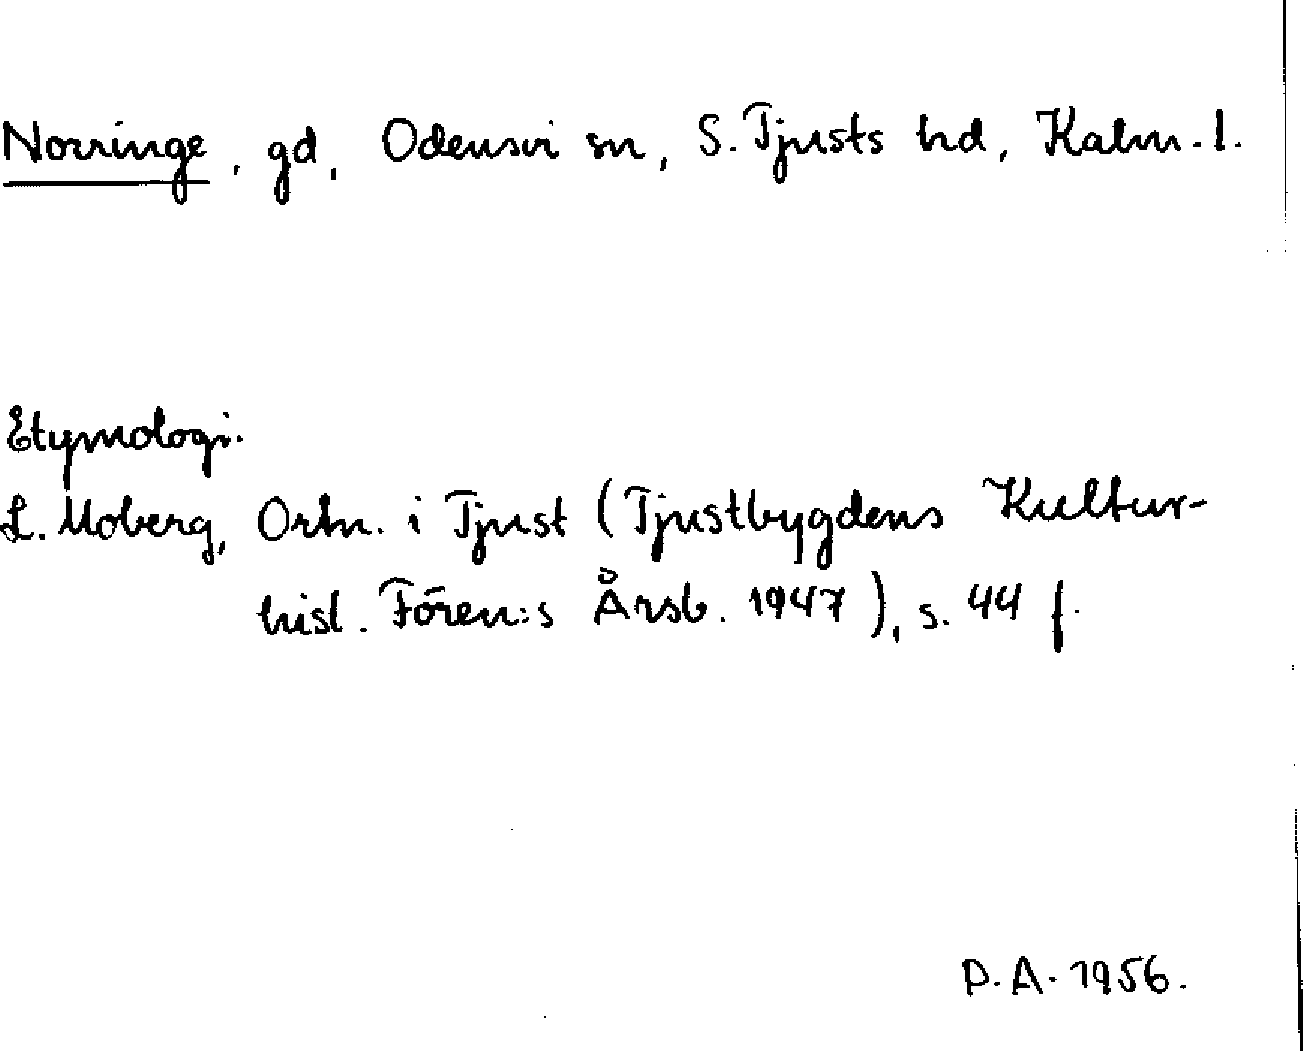 Norringe, gd, Odensvi sn, S. Tjusts hd, Kalm. l.
Etymologi.
L. Moberg, Ortn. i Tjust (Tjustbygdens Kultur-
hist. Fören:s Årsb. 1947), s. 44 f.
P.A. 1956.